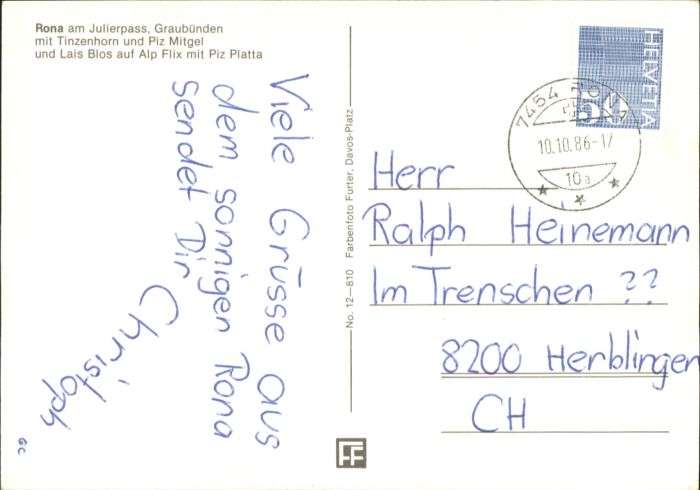 Rona am Julierpass, Graubünden
mit Tinzenhorn und Piz Mitgel
und Lais Blos auf Alp Flix mit Piz Platta
Viele Grüsse aus
dem sonnigen Rona
sendet Dir
Christoph
GC
No. 12—810 Farbenfoto Furter, Davos-Platz
HELVETIA
7454 RONA
10.10.86-17
10a
Herr
Ralph Heinemann
Im Trenschen ??
8200 Herblingen
CH
FF